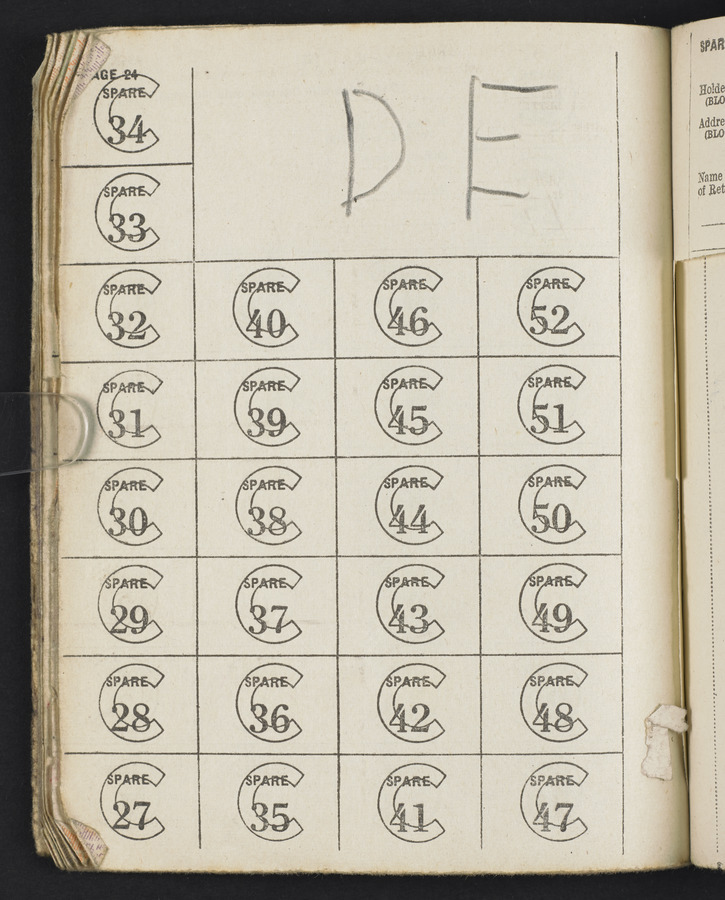 AGE 24
SPARE
C
34
D E
SPARE
C
33
SPARE SPARE SPARE SPARE
C C C C
32 40 46 52
SPARE SPARE SPARE SPARE
C C C C
31 39 45 51
SPARE SPARE SPARE SPARE
C C C C
30 38 44 50
SPARE SPARE SPARE SPARE
C C C C
29 37 43 49
SPARE SPARE SPARE SPARE
C C C C
28 36 42 48
SPARE SPARE SPARE SPARE
C C C C
27 35 41 47
SPAR
Holde
(BLO
Addre
(BLO
Name
of Ret